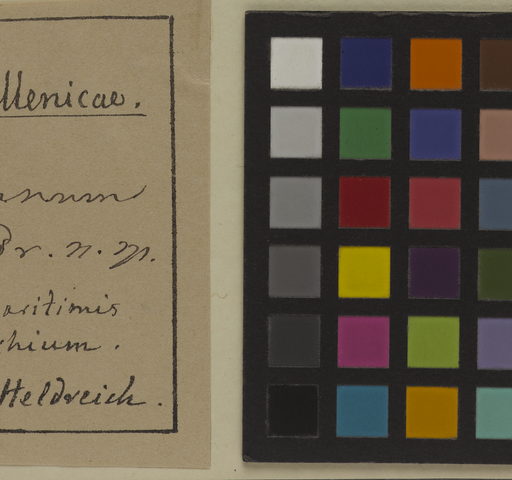 llenicae.
anum
Br. n. sp.
aritimis
rhium.
Heldreich.